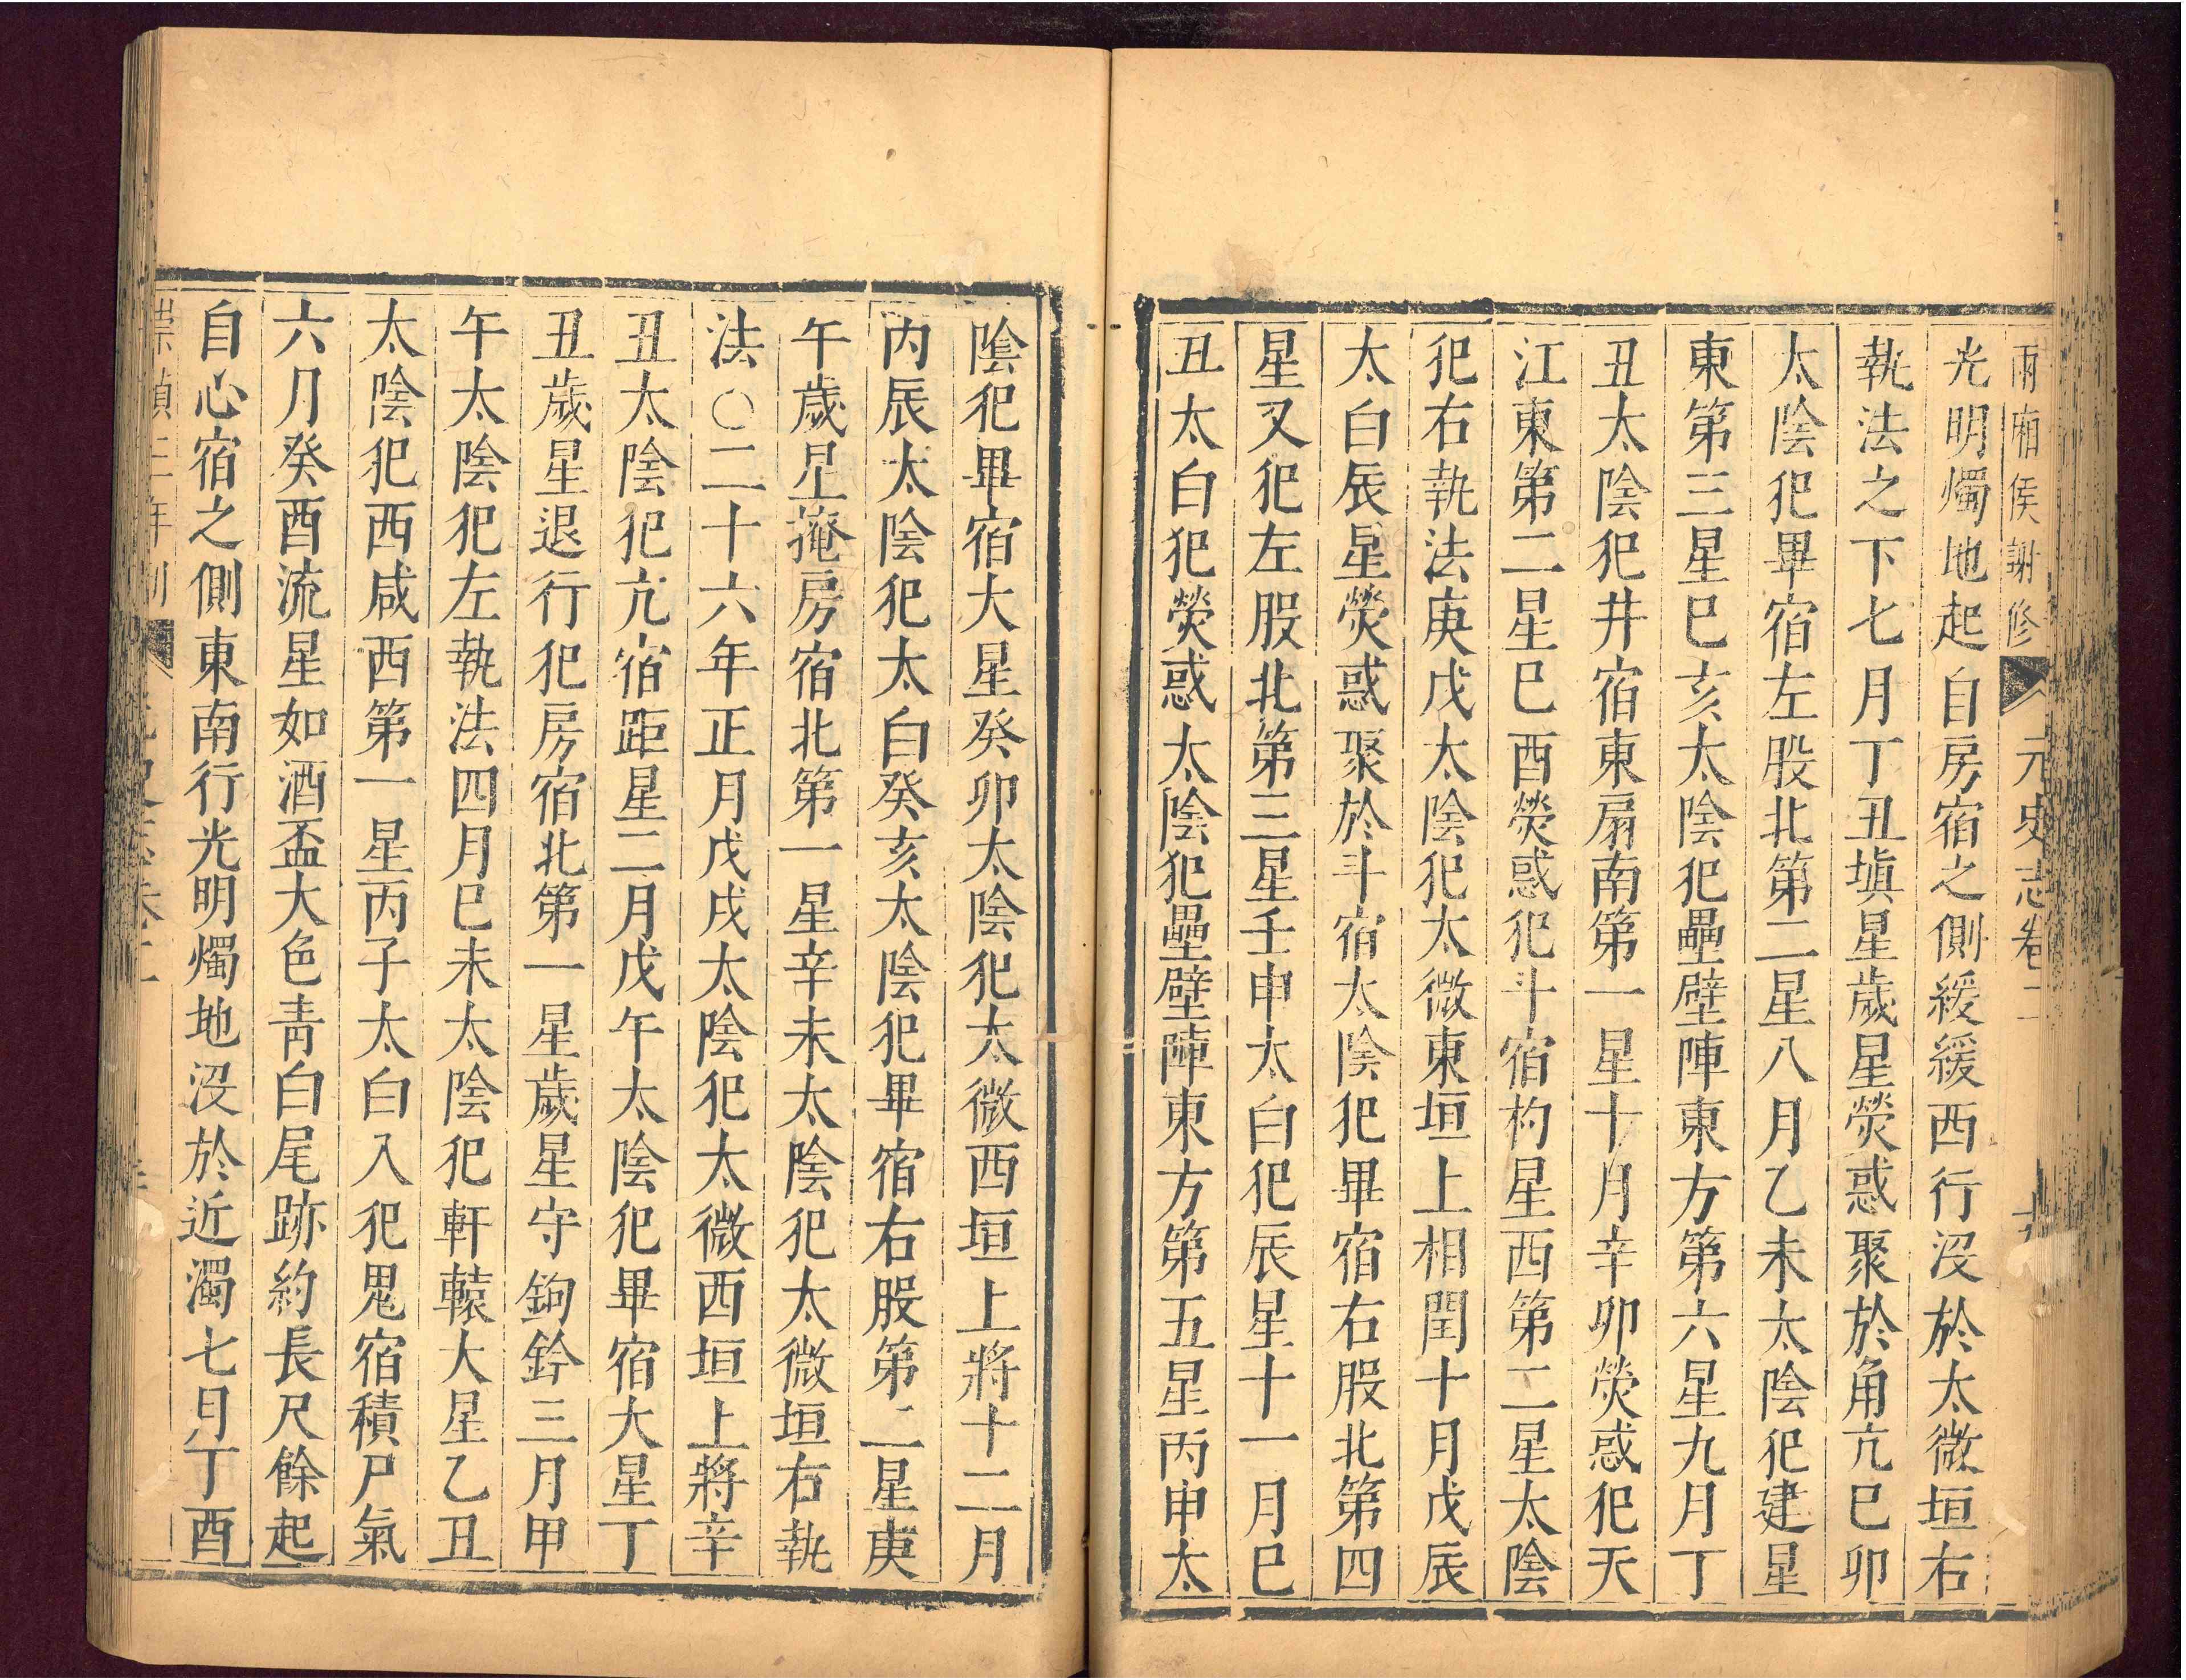 兩廂侯謝修 元史志卷二
光明燭地起自房宿之側緩緩西行没於太微垣右
執法之下七月丁丑塡星歲星熒惑聚於角亢巳卯
太陰犯畢宿左股北第二星八月乙未太陰犯建星
東第三星巳亥太陰犯壘壁陣東方第六星九月丁
丑太陰犯井宿東扇南第一星十月辛卯熒惑犯天
江東第二星巳酉熒惑犯斗宿杓星西第二星太陰
犯右執法庚戌太陰犯太微東垣上相閏十月戊辰
太白辰星熒惑聚於斗宿太陰犯畢宿右股北第四
星又犯左股北第三星壬申太白犯辰星十一月巳
丑太白犯熒惑太陰犯壘壁陣東方第五星丙申太
陰犯畢宿大星癸卯太陰犯太微西垣上將十二月
丙辰太陰犯太白癸亥太陰犯畢宿右股第二星庚
午歲星掩房宿北第一星辛未太陰犯太微垣右執
法○二十六年正月戊戌太陰犯太微西垣上將辛
丑太陰犯亢宿距星二月戊午太陰犯畢宿大星丁
丑歲星退行犯房宿北第一星歲星守鉤鈐三月甲
午太陰犯左執法四月巳未太陰犯軒轅大星乙丑
太陰犯西咸西第一星丙子太白入犯鬼宿積尸氣
六月癸酉流星如酒盃大色青白尾跡約長尺餘起
自心宿之側東南行光明燭地没於近濁七月丁酉
崇禎三年刊